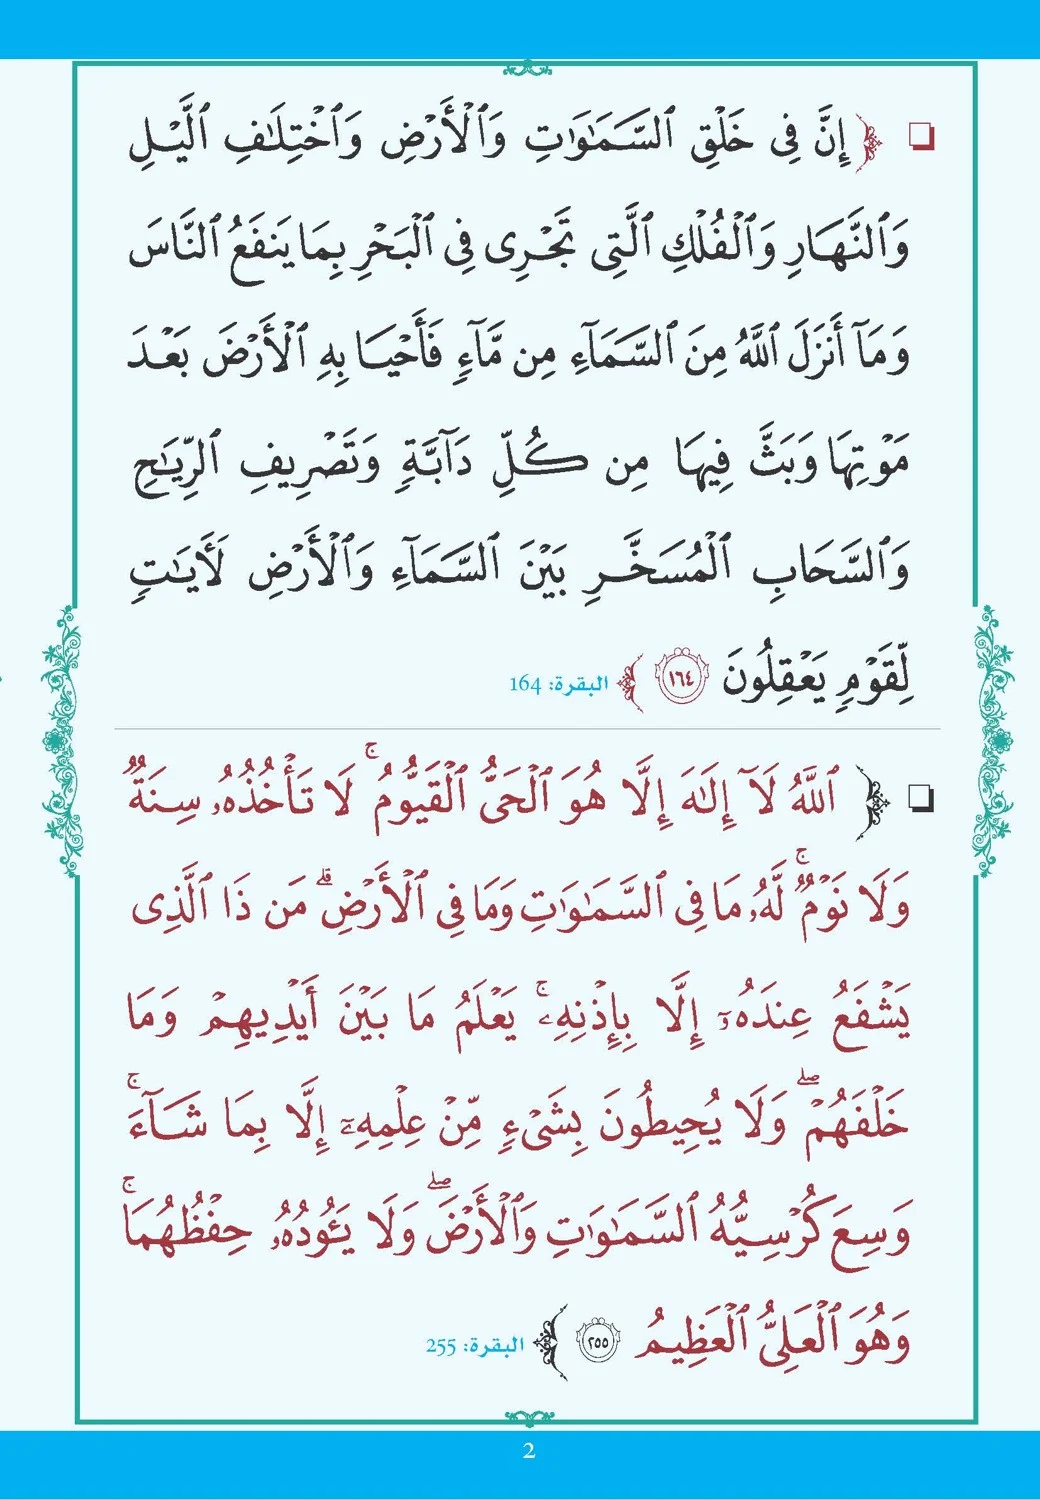 ❏ ﴿ إِنَّ فِى خَلْقِ ٱلسَّمَـٰوَٰتِ وَٱلْأَرْضِ وَٱخْتِلَـٰفِ ٱلَّيْلِ
وَٱلنَّهَارِ وَٱلْفُلْكِ ٱلَّتِى تَجْرِى فِى ٱلْبَحْرِ بِمَا يَنفَعُ ٱلنَّاسَ
وَمَآ أَنزَلَ ٱللَّهُ مِنَ ٱلسَّمَآءِ مِن مَّآءٍ فَأَحْيَا بِهِ ٱلْأَرْضَ بَعْدَ
مَوْتِهَا وَبَثَّ فِيهَا مِن كُلِّ دَآبَّةٍ وَتَصْرِيفِ ٱلرِّيَـٰحِ
وَٱلسَّحَابِ ٱلْمُسَخَّرِ بَيْنَ ٱلسَّمَآءِ وَٱلْأَرْضِ لَـَٔايَـٰتٍ
لِّقَوْمٍ يَعْقِلُونَ ١٦٤ ﴾ البقرة: 164
❏ ﴿ ٱللَّهُ لَآ إِلَـٰهَ إِلَّا هُوَ ٱلْحَىُّ ٱلْقَيُّومُ ۚ لَا تَأْخُذُهُۥ سِنَةٌ
وَلَا نَوْمٌ ۚ لَّهُۥ مَا فِى ٱلسَّمَـٰوَٰتِ وَمَا فِى ٱلْأَرْضِ ۗ مَن ذَا ٱلَّذِى
يَشْفَعُ عِندَهُۥٓ إِلَّا بِإِذْنِهِۦ ۚ يَعْلَمُ مَا بَيْنَ أَيْدِيهِمْ وَمَا
خَلْفَهُمْ ۖ وَلَا يُحِيطُونَ بِشَىْءٍ مِّنْ عِلْمِهِۦٓ إِلَّا بِمَا شَآءَ ۚ
وَسِعَ كُرْسِيُّهُ ٱلسَّمَـٰوَٰتِ وَٱلْأَرْضَ ۖ وَلَا يَـُٔودُهُۥ حِفْظُهُمَا ۚ
وَهُوَ ٱلْعَلِىُّ ٱلْعَظِيمُ ٢٥٥ ﴾ البقرة: 255
2